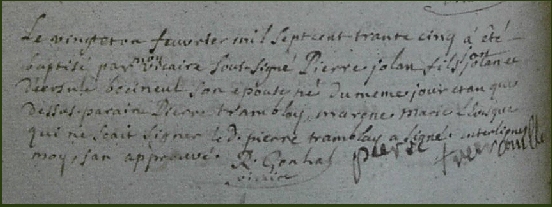 Le vingt trois fevrier mil sept cent trante cinq á été
baptisé par moy vicaire sous signé Pierre jolan fils jolan et
d'ursule son epouse né du meme jour et an que
dessus parain Pierre tramblay, marene marie
qui ne scait signer le dt pierre tramblay a signé. interligne
moy, jan approuvé. pierre
vicaire